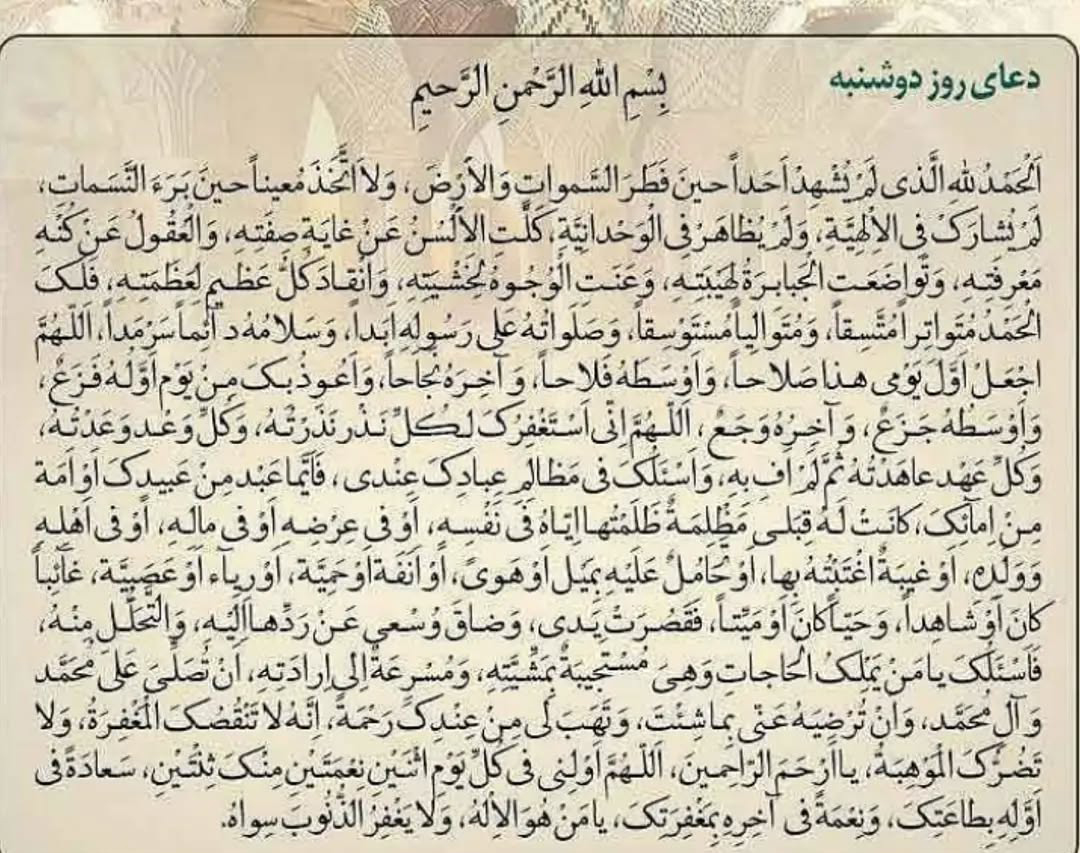 دعای روز دوشنبه
بِسْمِ اللهِ الرَّحْمنِ الرَّحیمِ
اَلْحَمْدُ لِلهِ الَّذی لَمْ یُشْهِدْ اَحَداً حینَ فَطَرَ السَّمواتِ وَالْاَرْضَ، وَلاَ اتَّخَذَ مُعیناً حینَ بَرَءَ النَّسَماتِ،
لَمْ یُشارَکْ فِی الْاِلهِیَّةِ، وَلَمْ یُظاهَرْ فِی الْوَحْدانِیَّةِ، کَلَّتِ الْاَلْسُنُ عَنْ غایَةِ صِفَتِهِ، وَالْعُقُولُ عَنْ کُنْهِ
مَعْرِفَتِهِ، وَتَواضَعَتِ الْجَبابِرَةُ لِهَیْبَتِهِ، وَعَنَتِ الْوُجُوهُ لِخَشْیَتِهِ، وَانْقادَ کُلُّ عَظیمٍ لِعَظَمَتِهِ، فَلَکَ
الْحَمْدُ مُتَواتِراً مُتَّسِقاً، وَمُتَوالِیاً مُسْتَوْسِقاً، وَصَلَواتُهُ عَلی رَسُولِهِ اَبَداً، وَسَلامُهُ دآئِماً سَرْمَداً، اَللّهُمَّ
اجْعَلْ اَوَّلَ یَوْمی هذا صَلاحاً، وَاَوْسَطَهُ فَلاحاً، وَ آخِرَهُ نَجاحاً، وَاَعُوذُ بِکَ مِنْ یَوْمٍ اَوَّلُهُ فَزَعٌ،
وَاَوْسَطُهُ جَزَعٌ، وَ آخِرُهُ وَجَعٌ، اَللّهُمَّ اِنّی اَسْتَغْفِرُکَ لِکُلِّ نَذْرٍ نَذَرْتُهُ، وَکُلِّ وَعْدٍ وَعَدْتُهُ،
وَکُلِّ عَهْدٍ عاهَدْتُهُ ثُمَّ لَمْ اَفِ بِهِ، وَاَسْئَلُکَ فی مَظالِمِ عِبادِکَ عِنْدی، فَاَیُّما عَبْدٍ مِنْ عَبیدِکَ اَوْ اَمَةٍ
مِنْ اِمآئِکَ، کانَتْ لَهُ قِبَلی مَظْلِمَةٌ ظَلَمْتُها اِیّاهُ فی نَفْسِهِ، اَوْ فی عِرْضِهِ اَوْ فی مالِهِ، اَوْ فی اَهْلِهِ
وَوَلَدِهِ، اَوْ غیبَةٌ اغْتَبْتُهُ بِها، اَوْ تَحامُلٌ عَلَیْهِ بِمَیْلٍ اَوْ هَویً، اَوْ اَنَفَةٍ اَوْ حَمِیَّةٍ، اَوْ رِیآءٍ اَوْ عَصَبِیَّةٍ، غآئِباً
کانَ اَوْ شاهِداً، وَحَیّاً کانَ اَوْ مَیِّتاً، فَقَصُرَتْ یَدی، وَضاقَ وُسْعی عَنْ رَدِّها اِلَیْهِ، وَالتَّحَلُّلِ مِنْهُ،
فَاَسْئَلُکَ یا مَنْ یَمْلِکُ الْحاجاتِ وَهِیَ مُسْتَجیبَةٌ بِمَشِیَّتِهِ، وَمُسْرِعَةٌ اِلی اِرادَتِهِ، اَنْ تُصَلِّیَ عَلی مُحَمَّدٍ
وَ آلِ مُحَمَّدٍ، وَاَنْ تُرْضِیَهُ عَنّی بِما شِئْتَ، وَتَهَبَ لی مِنْ عِنْدِکَ رَحْمَةً، اِنَّهُ لا تَنْقُصُکَ الْمَغْفِرَةُ، وَلا
تَضُرُّکَ الْمَوْهِبَةُ، یا اَرْحَمَ الرّاحِمینَ، اَللّهُمَّ اَوْلِنی فی کُلِّ یَوْمِ اثْنَیْنِ نِعْمَتَیْنِ مِنْکَ ثِنْتَیْنِ، سَعادَةً فی
اَوَّلِهِ بِطاعَتِکَ، وَنِعْمَةً فی آخِرِهِ بِمَغْفِرَتِکَ، یا مَنْ هُوَ الْاِلهُ، وَلا یَغْفِرُ الذُّنُوبَ سِواهُ.